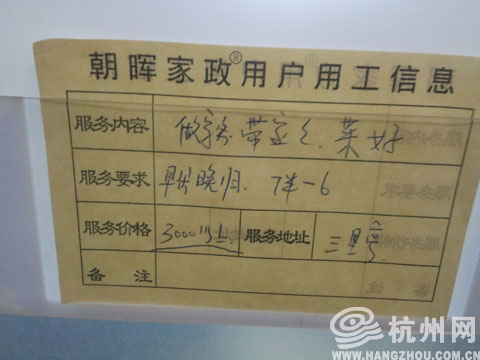 朝晖家政®用户用工信息
服务内容 做家务 带宝宝、菜好
服务要求 早出晚归. 7半-6
服务价格 3000以上 服务地址 三里亭
备注
杭州网
WWW.HANGZHOU.COM.CN